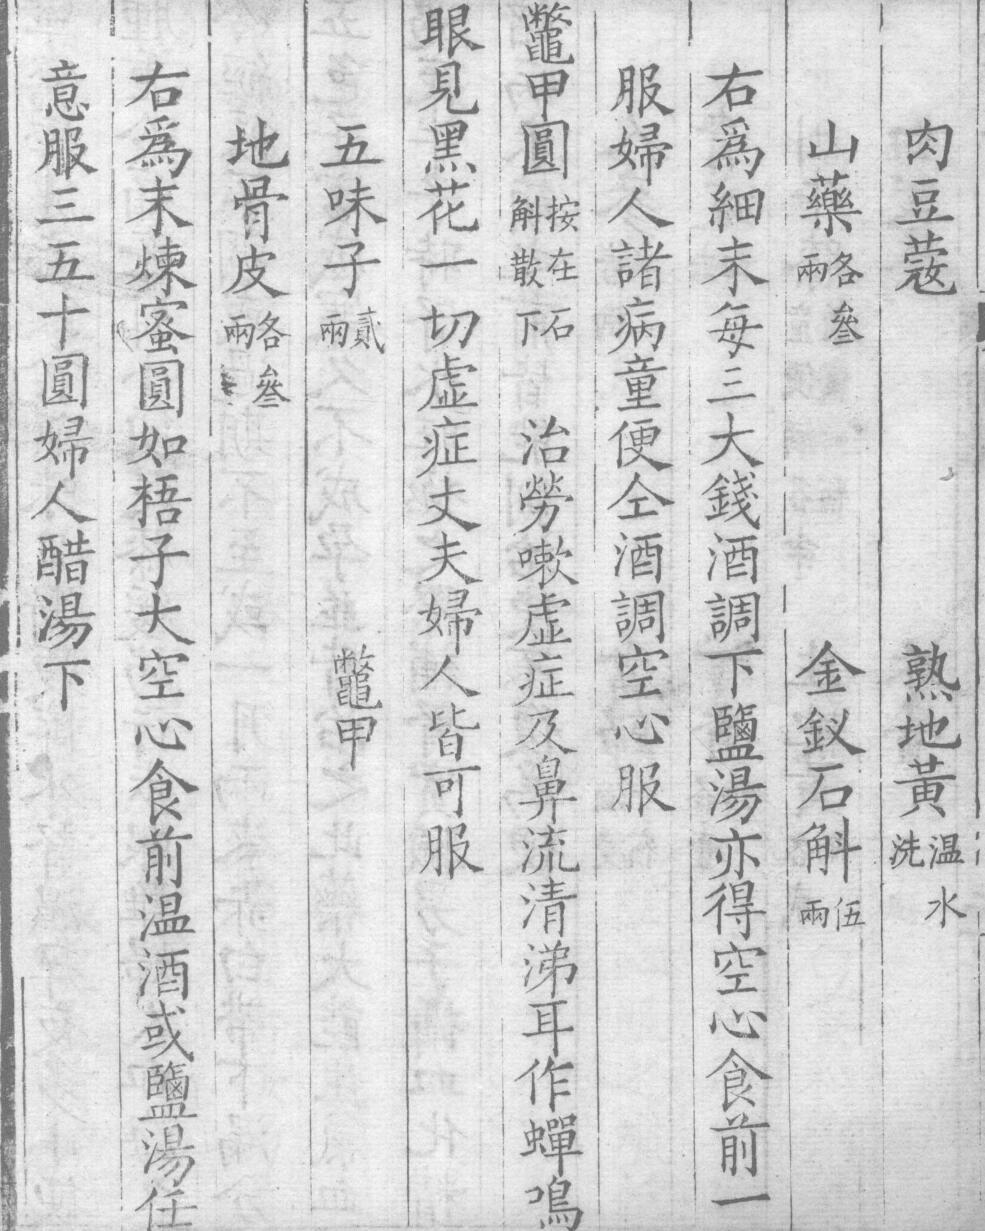 肉豆蔻　熟地黃温水洗
山藥各叄兩　金釵石斛伍兩
右爲細末每三大錢酒調下鹽湯亦得空心食前一
服婦人諸病童便仝酒調空心服
鼈甲圓按在石斛散下　治勞嗽虛症及鼻流清涕耳作蟬鳴
眼見黑花一切虛症丈夫婦人皆可服
五味子貳兩　鼈甲
地骨皮各叄兩
右爲末煉蜜圓如梧子大空心食前温酒或鹽湯任
意服三五十圓婦人醋湯下